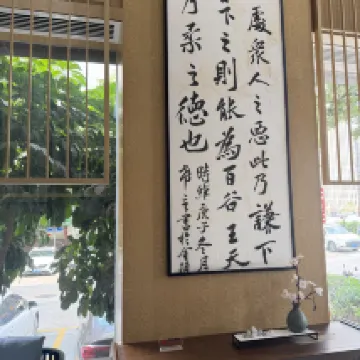 處衆人之惡此乃謙下
下之則能為百谷王天
乃柔之德也
時維庚子冬月